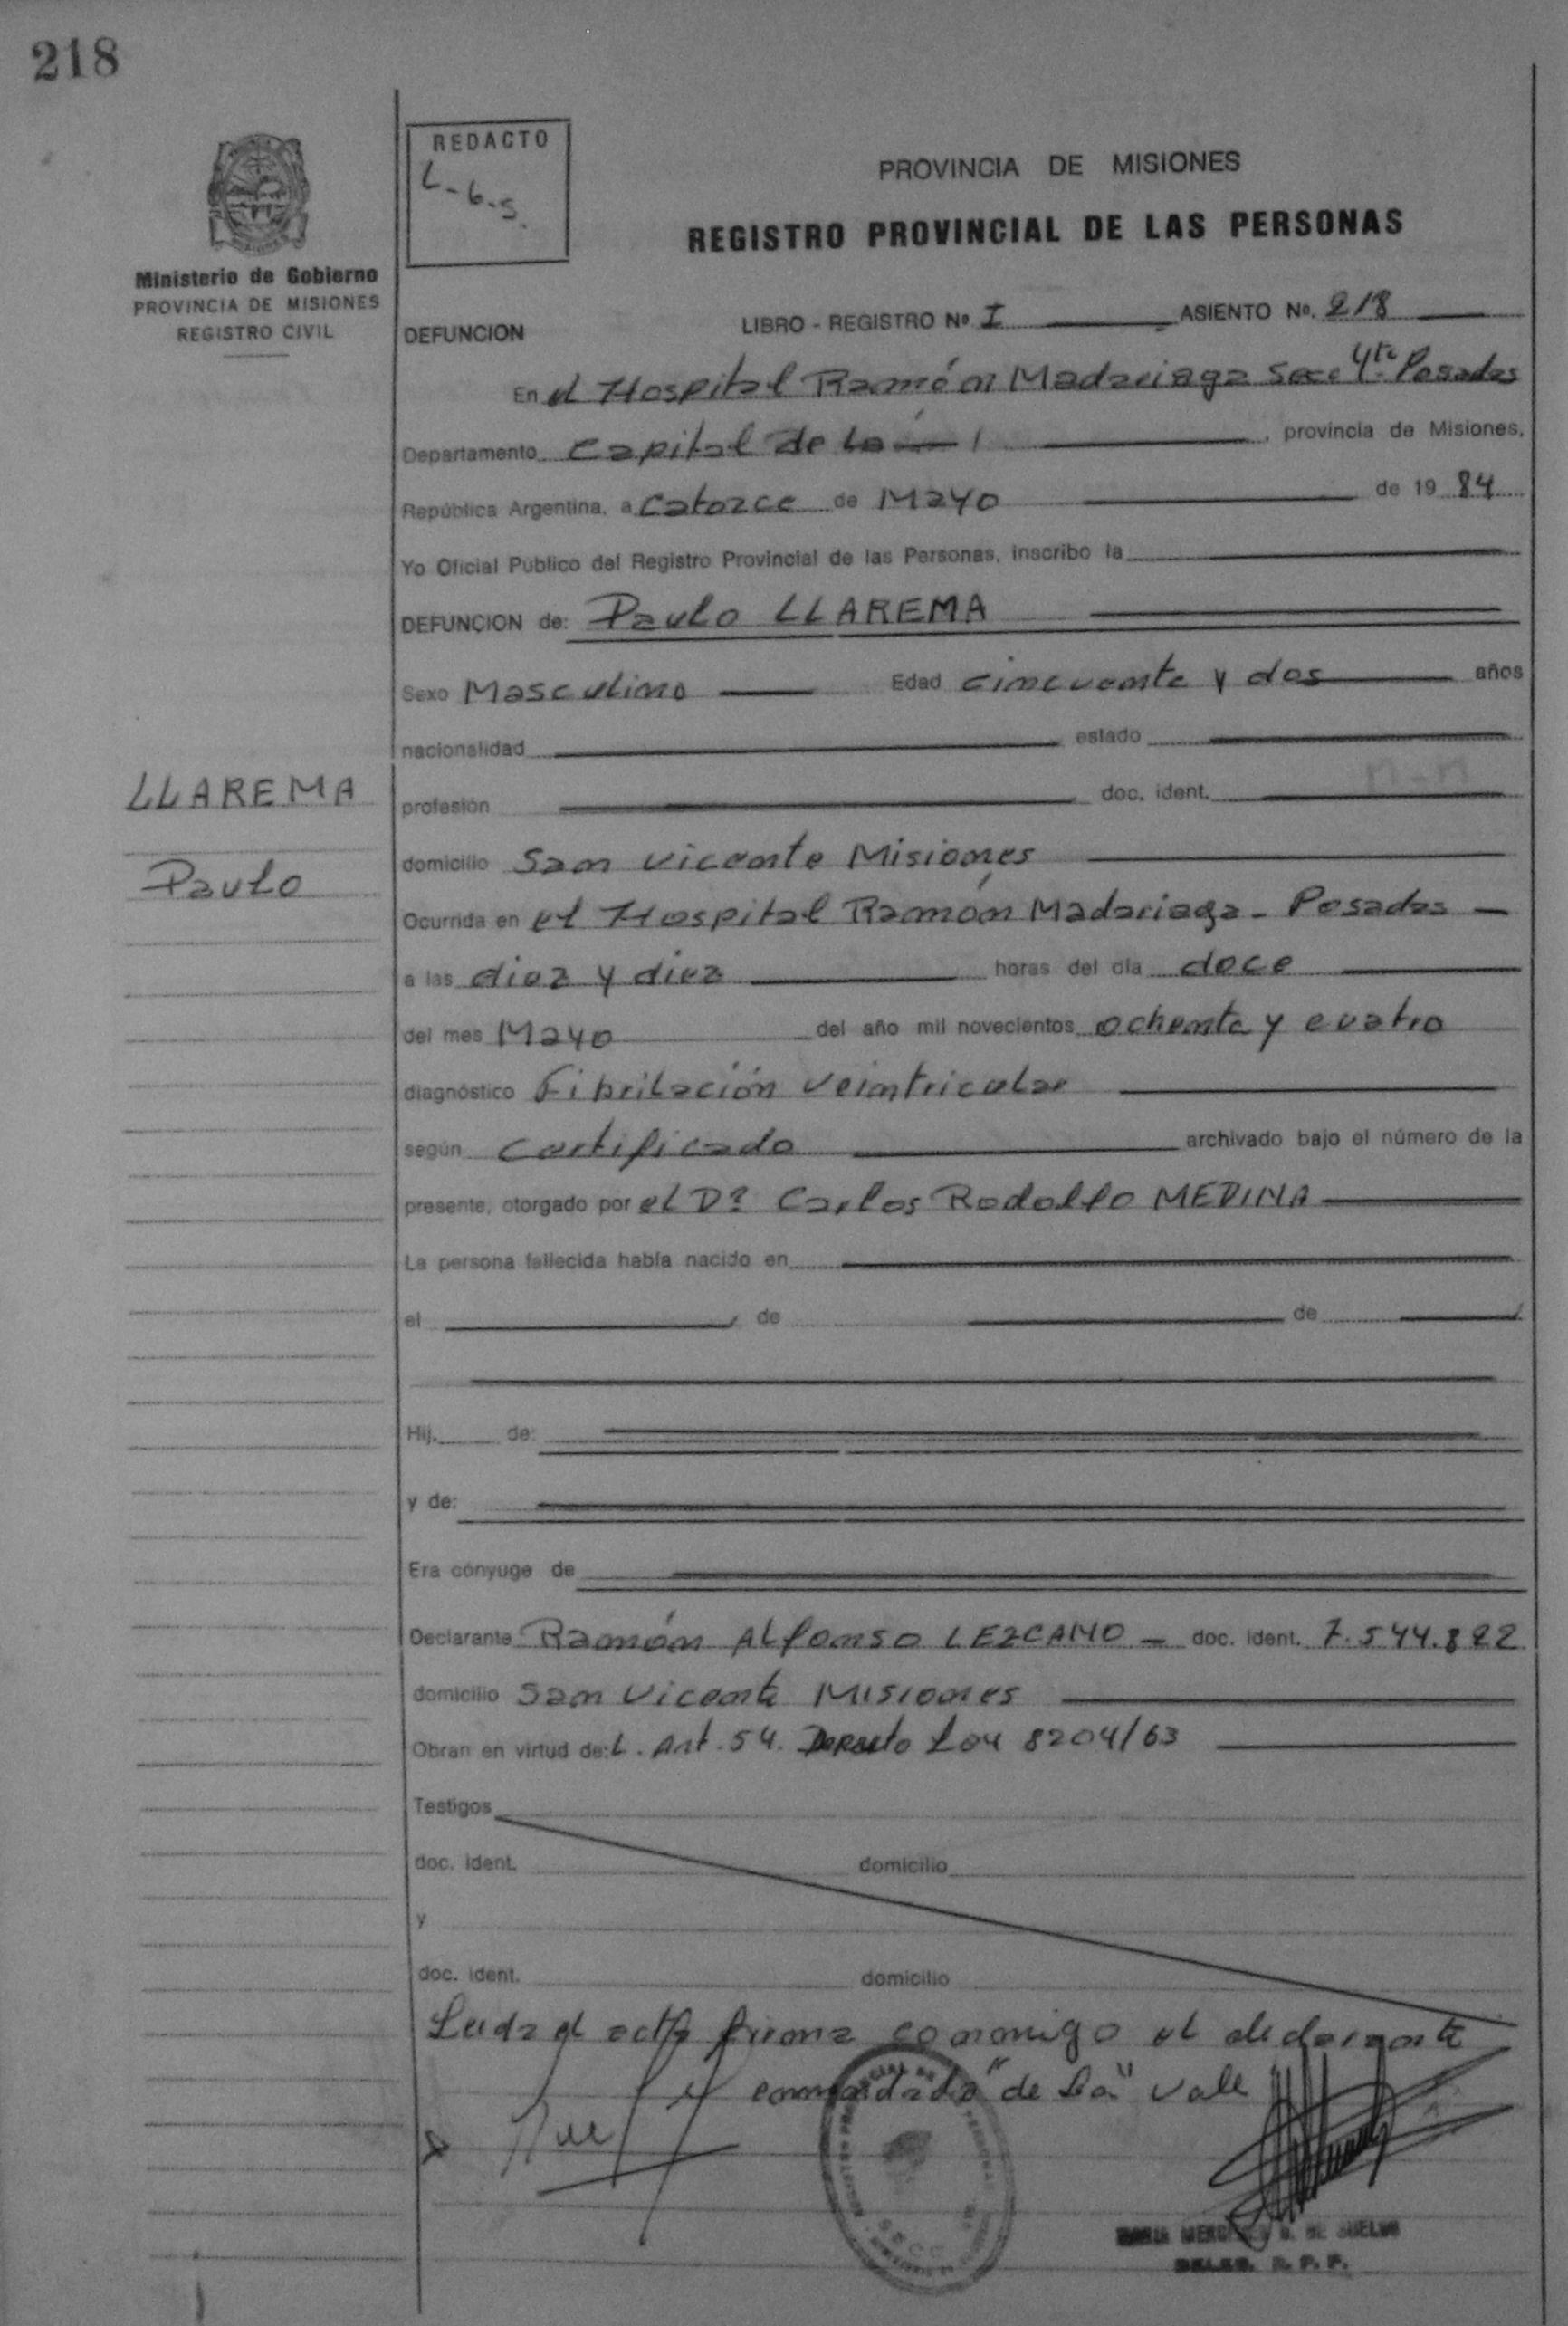 218
REDACTO
L-6-S.
Ministerio de Gobierno
PROVINCIA DE MISIONES
REGISTRO CIVIL
PROVINCIA DE MISIONES
REGISTRO PROVINCIAL DE LAS PERSONAS
DEFUNCION LIBRO - REGISTRO Nº I ASIENTO Nº. 218
En el Hospital Ramón Madariaga Secc 4ta Posadas
Departamento Capital de la , provincia de Misiones,
República Argentina, a catorce de Mayo de 19 84
Yo Oficial Público del Registro Provincial de las Personas, inscribo la
DEFUNCION de: Paulo LLAREMA
Sexo Masculino Edad cincuenta y dos años
nacionalidad estado
LLAREMA
Paulo
profesión doc. ident.
domicilio San Vicente Misiones
Ocurrida en el Hospital Ramón Madariaga - Posadas
a las diez y diez horas del día doce
del mes Mayo del año mil novecientos ochenta y cuatro
diagnóstico Fibrilación Veintricular
según certificado archivado bajo el número de la
presente, otorgado por el Dr Carlos Rodolfo MEDINA
La persona fallecida había nacido en
el de de
Hij. de:
y de:
Era cónyuge de
Declarante Ramón Alfonso LEZCANO - doc. ident. 7.544.822
domicilio San Vicente Misiones
Obran en virtud de: L. Art. 54. Decreto Ley 8204/63
Testigos
doc. ident. domicilio
y
doc. ident. domicilio
Leida el acta firma conmigo el declarante
enmendado "de la" vale
DELEG. R. P. P.